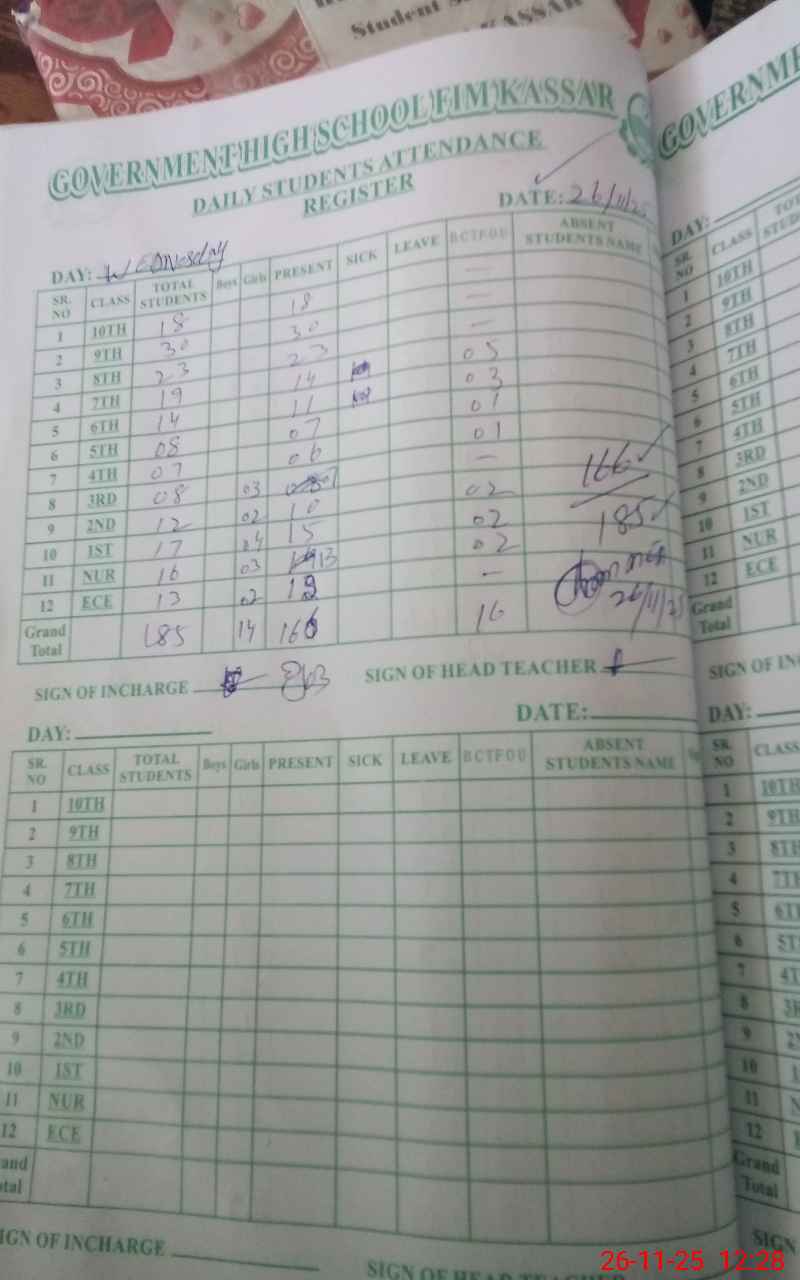 Student
KASSAR
GOVERNMENT HIGH SCHOOL FIM KASSAR
DAILY STUDENTS ATTENDANCE
REGISTER
DATE: 26/11/25
DAY: WEDNesday
SR. NO CLASS TOTAL STUDENTS Boys Girls PRESENT SICK LEAVE BCTFOU ABSENT STUDENTS NAME
1 10TH 18 18 —
2 9TH 30 30 —
3 8TH 23 23 —
4 7TH 19 14 05
5 6TH 14 11 03
6 5TH 08 07 01
7 4TH 07 06 01
8 3RD 08 03 —
9 2ND 12 02 10 02
10 1ST 17 04 15 02
11 NUR 16 03 13 02
12 ECE 13 02 —
Grand Total 185 14 166 16
166
185
26/11/25
SIGN OF INCHARGE
SIGN OF HEAD TEACHER
DAY:
DATE:
SR. NO CLASS TOTAL STUDENTS Boys Girls PRESENT SICK LEAVE BCTFOU ABSENT STUDENTS NAME
1 10TH
2 9TH
3 8TH
4 7TH
5 6TH
6 5TH
7 4TH
8 3RD
9 2ND
10 1ST
11 NUR
12 ECE
and
tal
IGN OF INCHARGE
SIGN OF HEAD TEACHER
GOVERNME
DAY:
SR. NO CLASS
1 10TH
2 9TH
3 8TH
4 7TH
5 6TH
6 5TH
7 4TH
8 3RD
9 2ND
10 1ST
11 NUR
12 ECE
Grand Total
SIGN OF IN
DAY:
SR. NO CLASS
1 10TH
2 9TH
3 8TH
4 7T
5 6T
6 5T
7 4T
8 3R
9 2N
10 1
11 N
12
Grand Total
SIGN
26-11-25 12:28